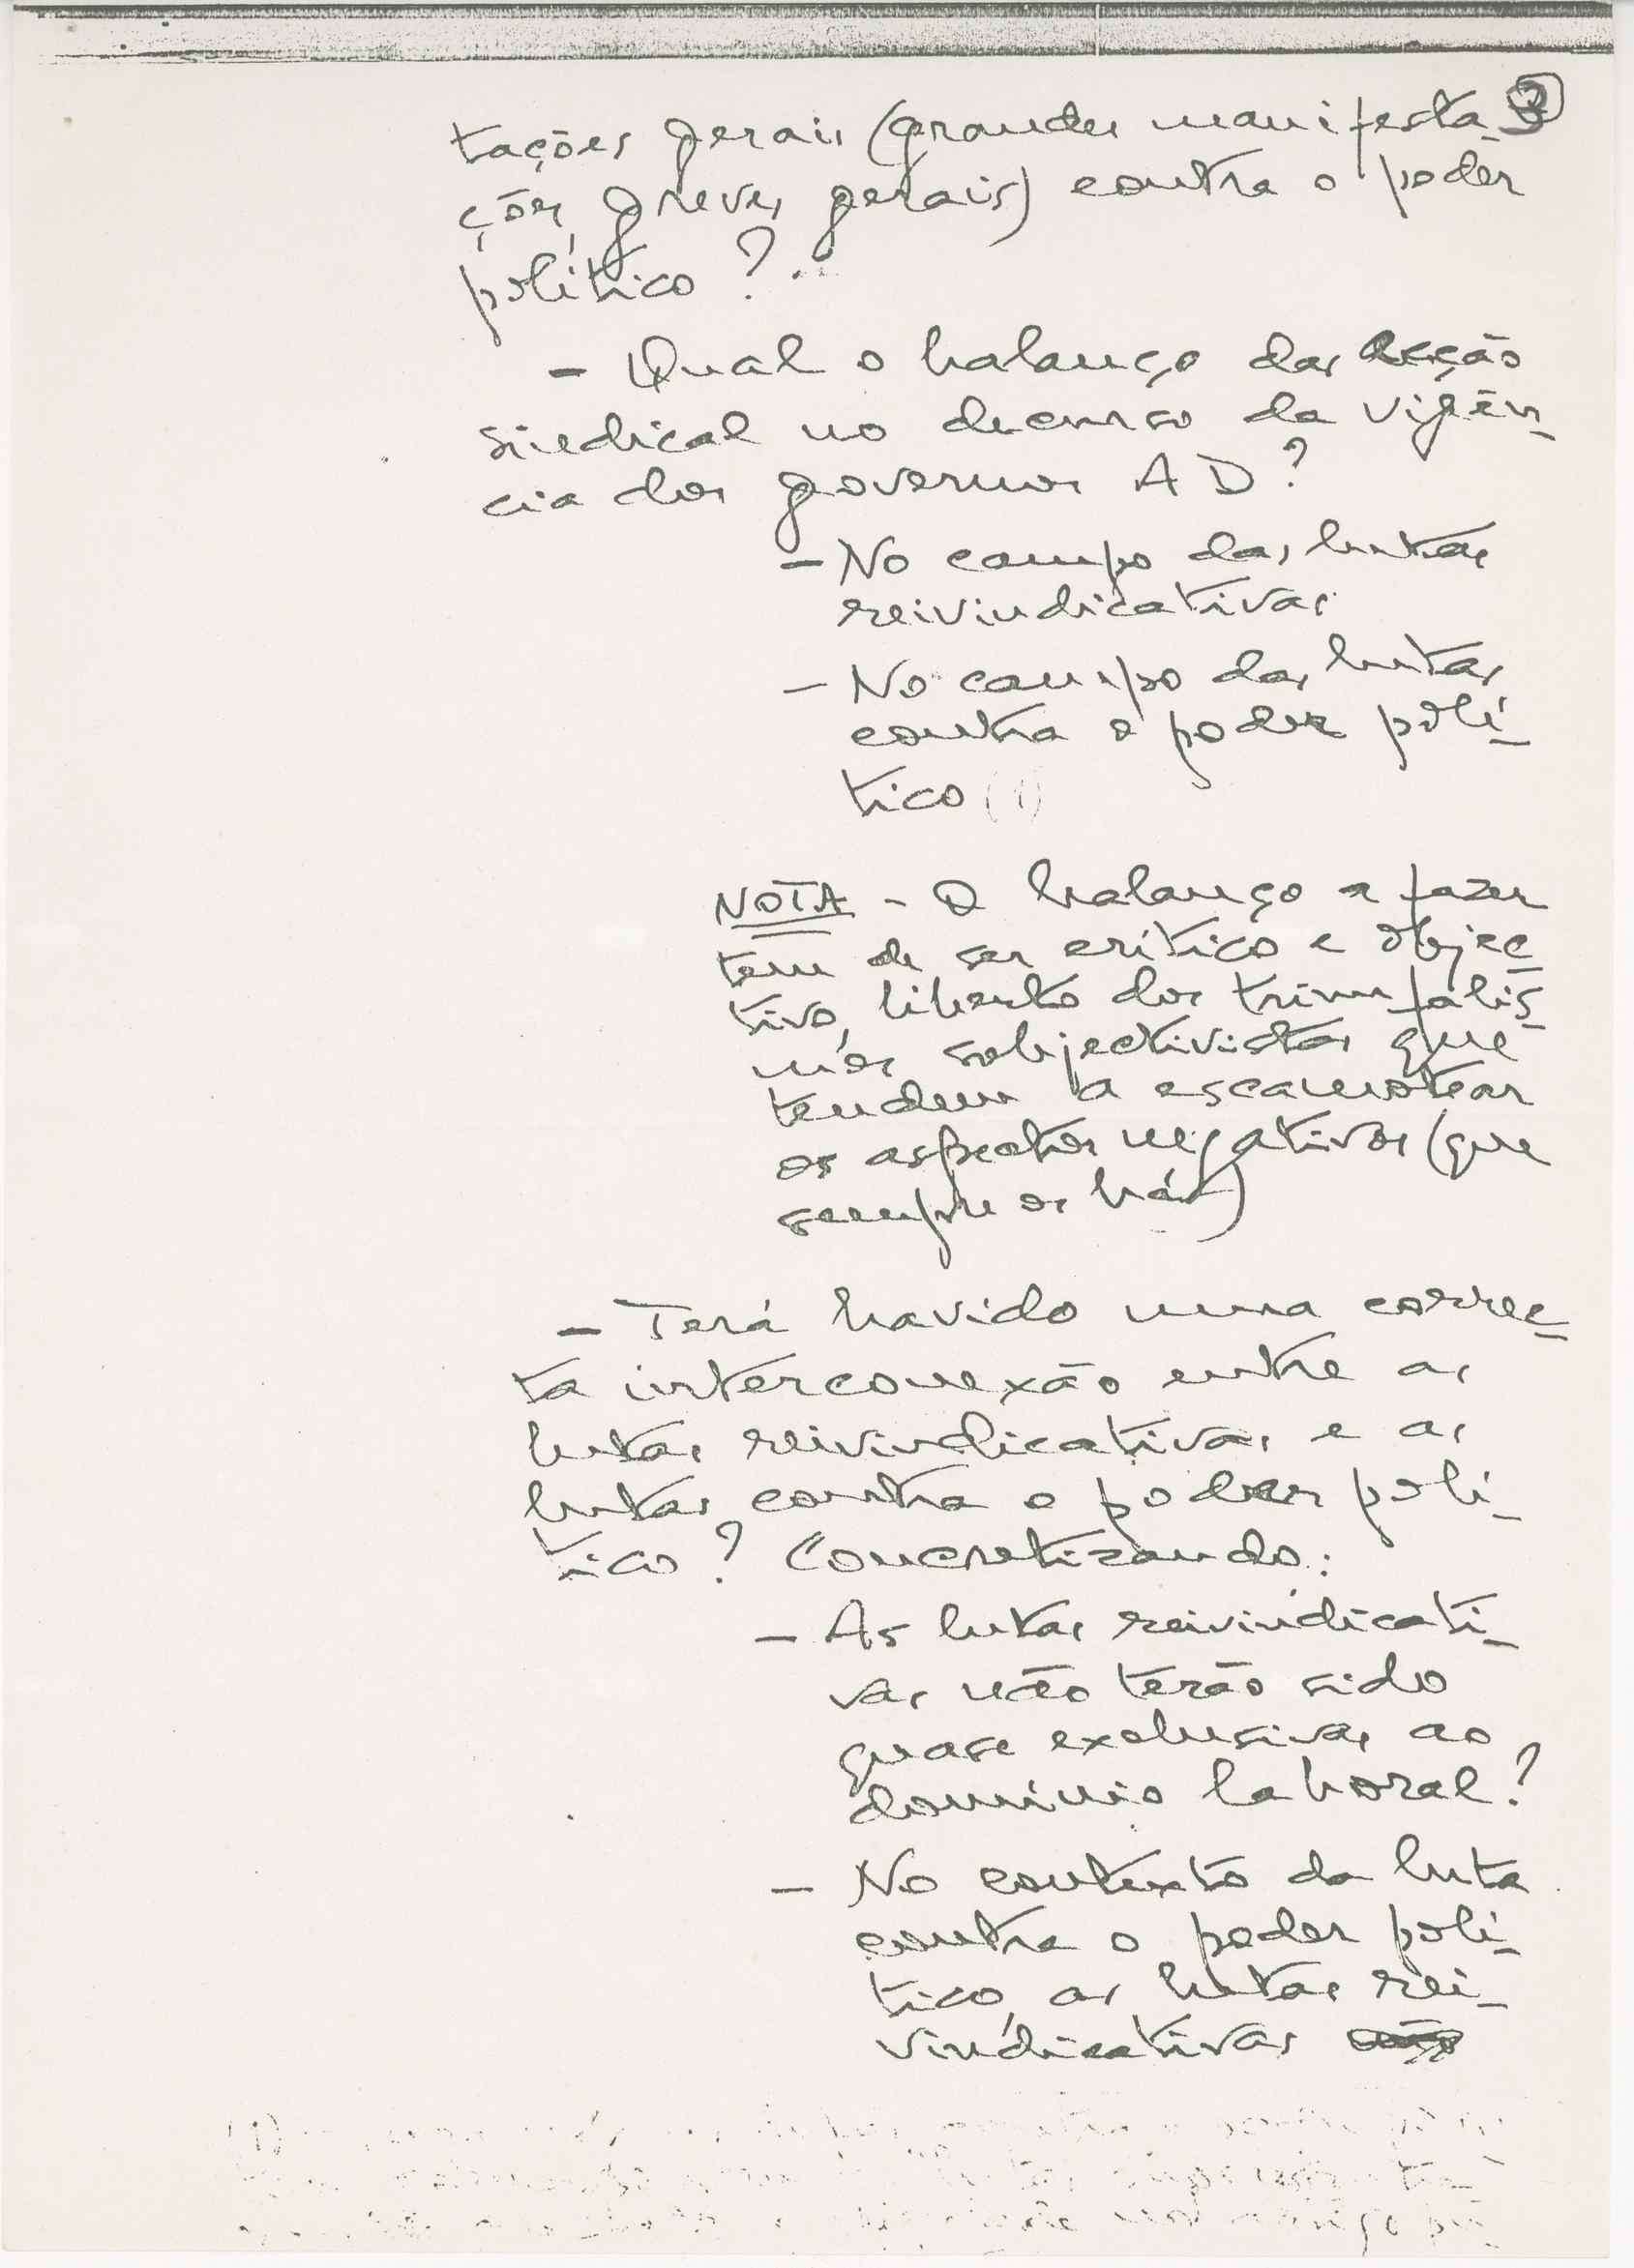 3
tações gerais (grandes manifesta-
ções, greves gerais) contra o poder
político?
- Qual o balanço das acção
sindical no decurso da vigên-
cia dos governos AD?
- No campo das lutas
reivindicativas
- No campo das lutas
contra o poder polí-
tico (1)
NOTA - O balanço a fazer
tem de ser crítico e objec-
tivo, liberto dos triunfalis-
mos subjectivistas que
tendem a escamotear
os aspectos negativos (que
sempre os há)
- Terá havido uma correc-
ta interconexão entre as
lutas reivindicativas e as
lutas contra o poder polí-
tico? Concretizando:
- As lutas reivindicati-
vas não terão sido
quase exclusivas ao
domínio laboral?
- No contexto da luta
contra o poder polí-
tico, as lutas rei-
vindicativas
(1)